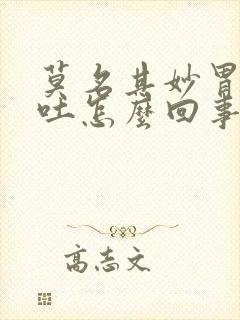 莫名其妙胃
吐怎麼回事
高志文